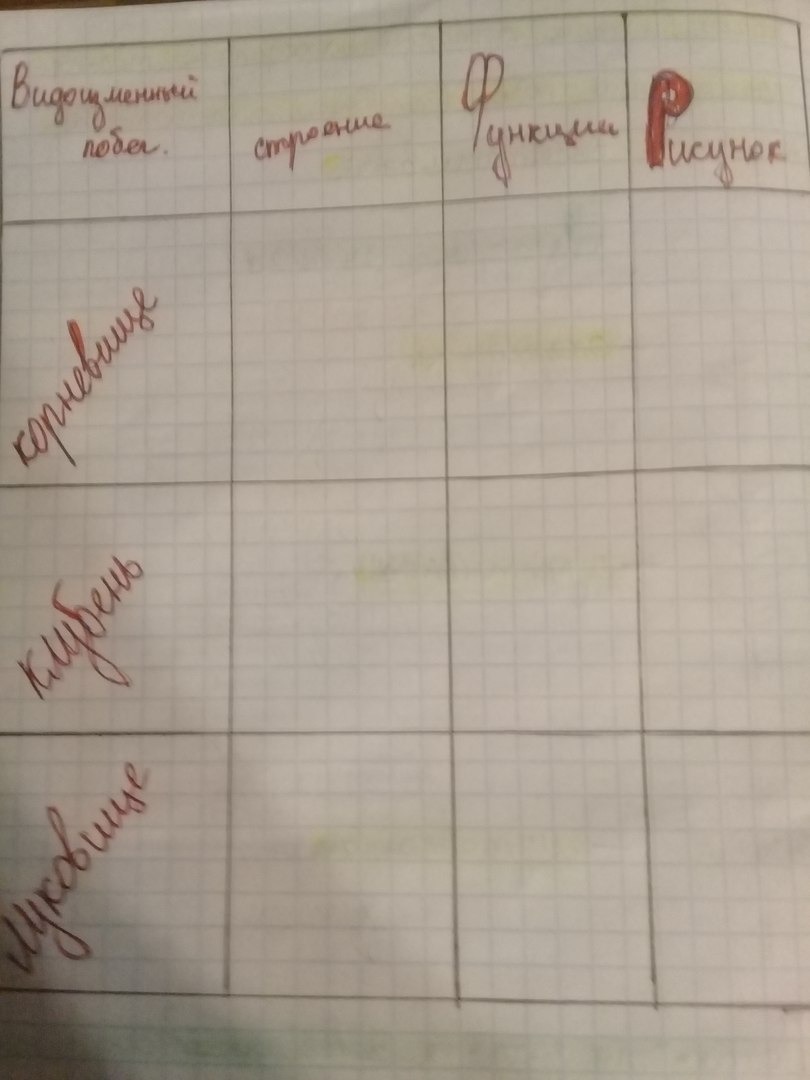 Видоизменный
побег.
строение
Функции
Рисунок
корневище
клубень
луковище